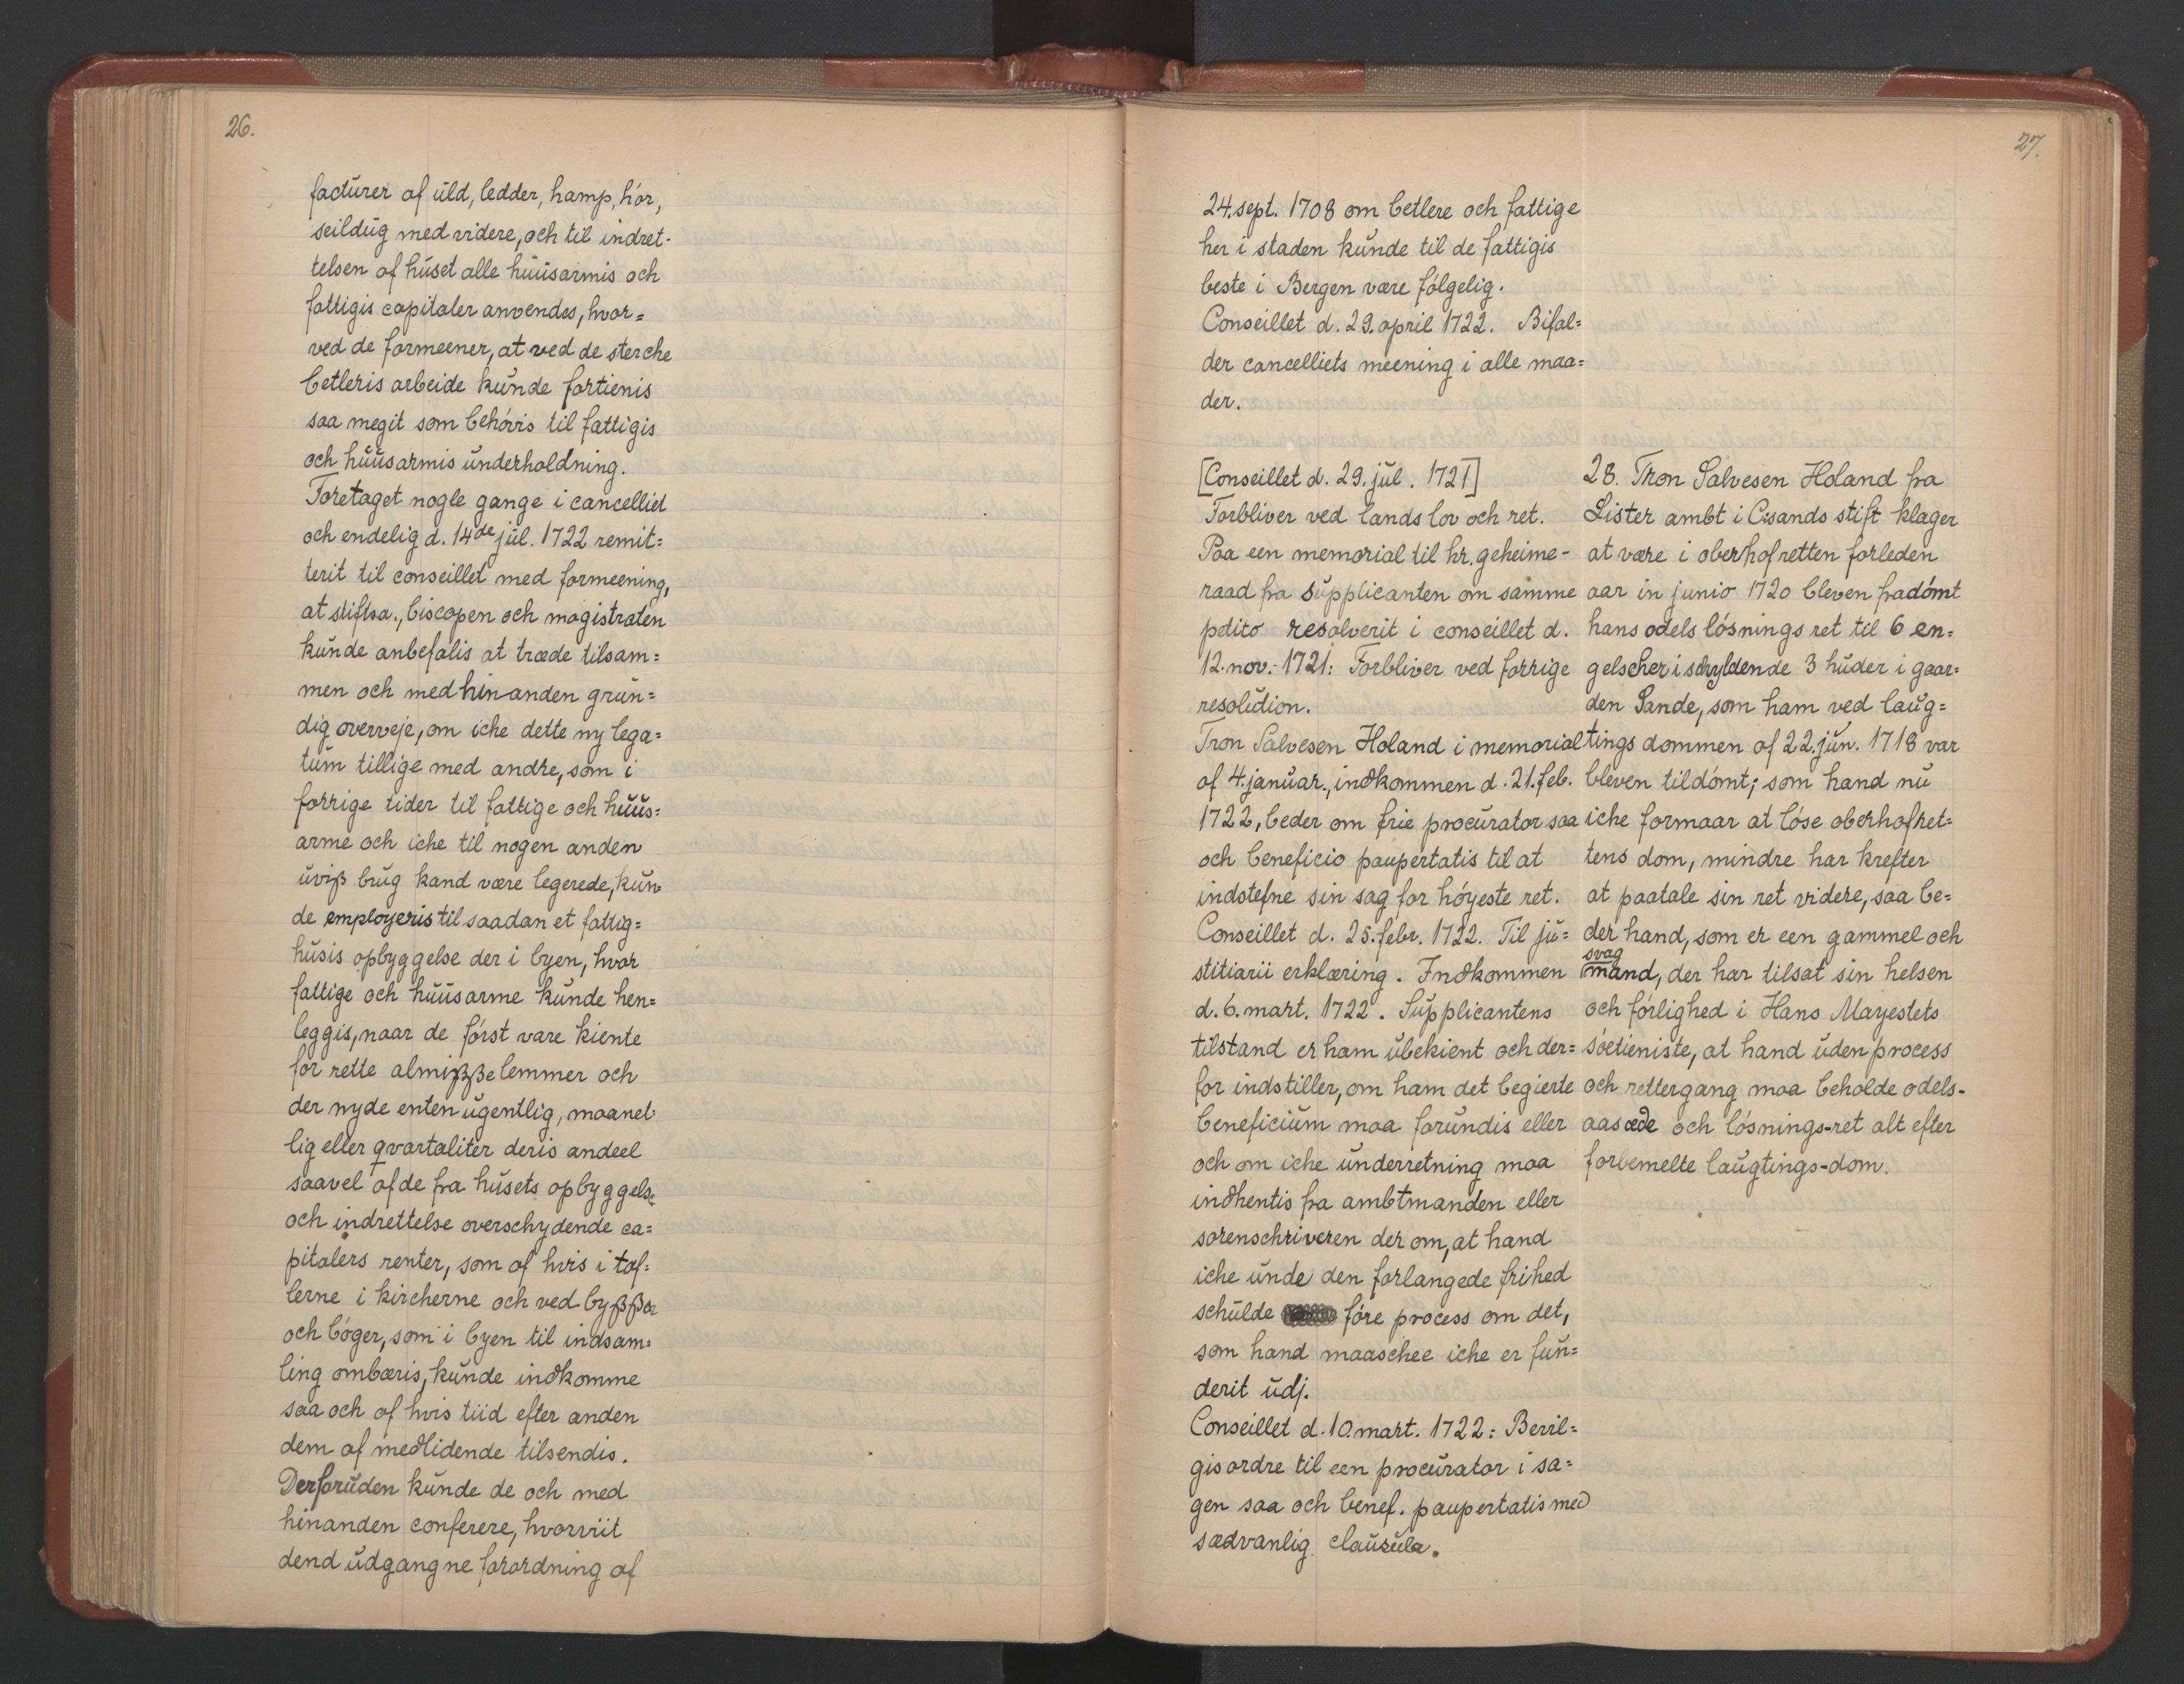 26.
facturer af uld, ledder, hamp, hór,
seildug med videre, och til indret-
telsen af huset alle huusarmis och
fattigis capitaler anvendes, hvor=
ved de formeener, at ved de sterche
betleris arbeide kunde fortienis
saa megit som behóvis til fattigis
och huusarmis underholdning.
Foretaget nogle gange i cancelliet
och endelig d. 14de jul. 1722 remit=
terit til conseillet med formeening,
at stiftsa., biscopen och magistraten
kunde anbefalis at træde tilsam=
men och med hinanden grun=
dig overveje, om iche dette ny lega=
tum tillige med andre, som i
forrige tider til fattige och huus=
arme och iche til nogen anden
uviß brug kand være legerede, kun
de employeris til saadan et fattig=
husis opbyggelse der i byen, hvor
fattige och huusarme kunde hen=
leggis, naar de fórst vare kiente
for rette almißße lemmer och
der nyde enten ugentlig, maanet
lig eller qvartaliter deris andeel
saavel af de fra husets opbyggelse
och indrettelse overschydende ca=
pitalers renter, som af hvis i taf=
lerne i kircherne och ved byßßer
och bóger, som i byen til indsam=
ling ombæris, kunde indkomme
saa och af hvis tiid efter anden
dem af medlidende tilsendis.
Derforuden kunde de och med
hinanden conferere, hvorviit
dend udgangne forordning af
27.
24. sept. 1708 om betlere och fattige
her i staden kunde til de fattigis
beste i Bergen være fólgelig.
Conseillet d. 29. april 1722. Bifal=
der cancelliets meening i alle maa=
der.
[Conseillet d. 29. jul. 1721]
Forbliver ved lands lov och ret.
Paa een memorial til hr. geheime-
raad fra supplicanten om samme
petito resolverit i conseillet d.
12. nov. 1721: Forbliver ved forrige
resolution.
Tron Salvesen Holand i memorial
af 4. januar., indkommen d. 21. feb.
1722, beder om frie procurator saa
och beneficio paupertatis til at
indstefne sin sag for hóyeste ret.
Conseillet d. 25. febr. 1722. Til ju=
stitiarii erklæring. Indkommen
d. 6. mart. 1722. Supplicantens
tilstand er ham ubekient och der=
for indstiller, om ham det begierte
beneficium maa forundis eller
och om iche underretning maa
indhentis fra ambtmanden eller
sorenschriveren der om, at hand
iche unde den forlangede frihed
schulde fóre process om det,
som hand maaschee iche er fun=
derit udj.
Conseillet d. 10. mart. 1722: Bevil=
gis ordre til een procurator i sa=
gen saa och benef. paupertatis med
sædvanlig clausula.
28. Tron Salvesen Holand fra
Lister ambt i C:sands stift klager
at være i oberhofretten forleden
aar in junio 1720 bleven fradómt
hans odels lósnings ret til 6 en=
gelscher i schyldende 3 huder i gaar=
den Sande, som ham ved laug=
tings dommen af 22. jun. 1718 var
bleven tildómt; som hand nu
iche formaar at lóse oberhofret=
tens dom, mindre har krefter
at paatale sin ret videre, saa be=
der hand, som er een gammel och
svag
mand, der har tilsat sin helsen
och fórlighed i Hans Mayestets
sóetieniste, at hand uden process
och rettergang maa beholde odels-
aasæde och lósnings-ret alt efter
forbemelte laugtings-dom.